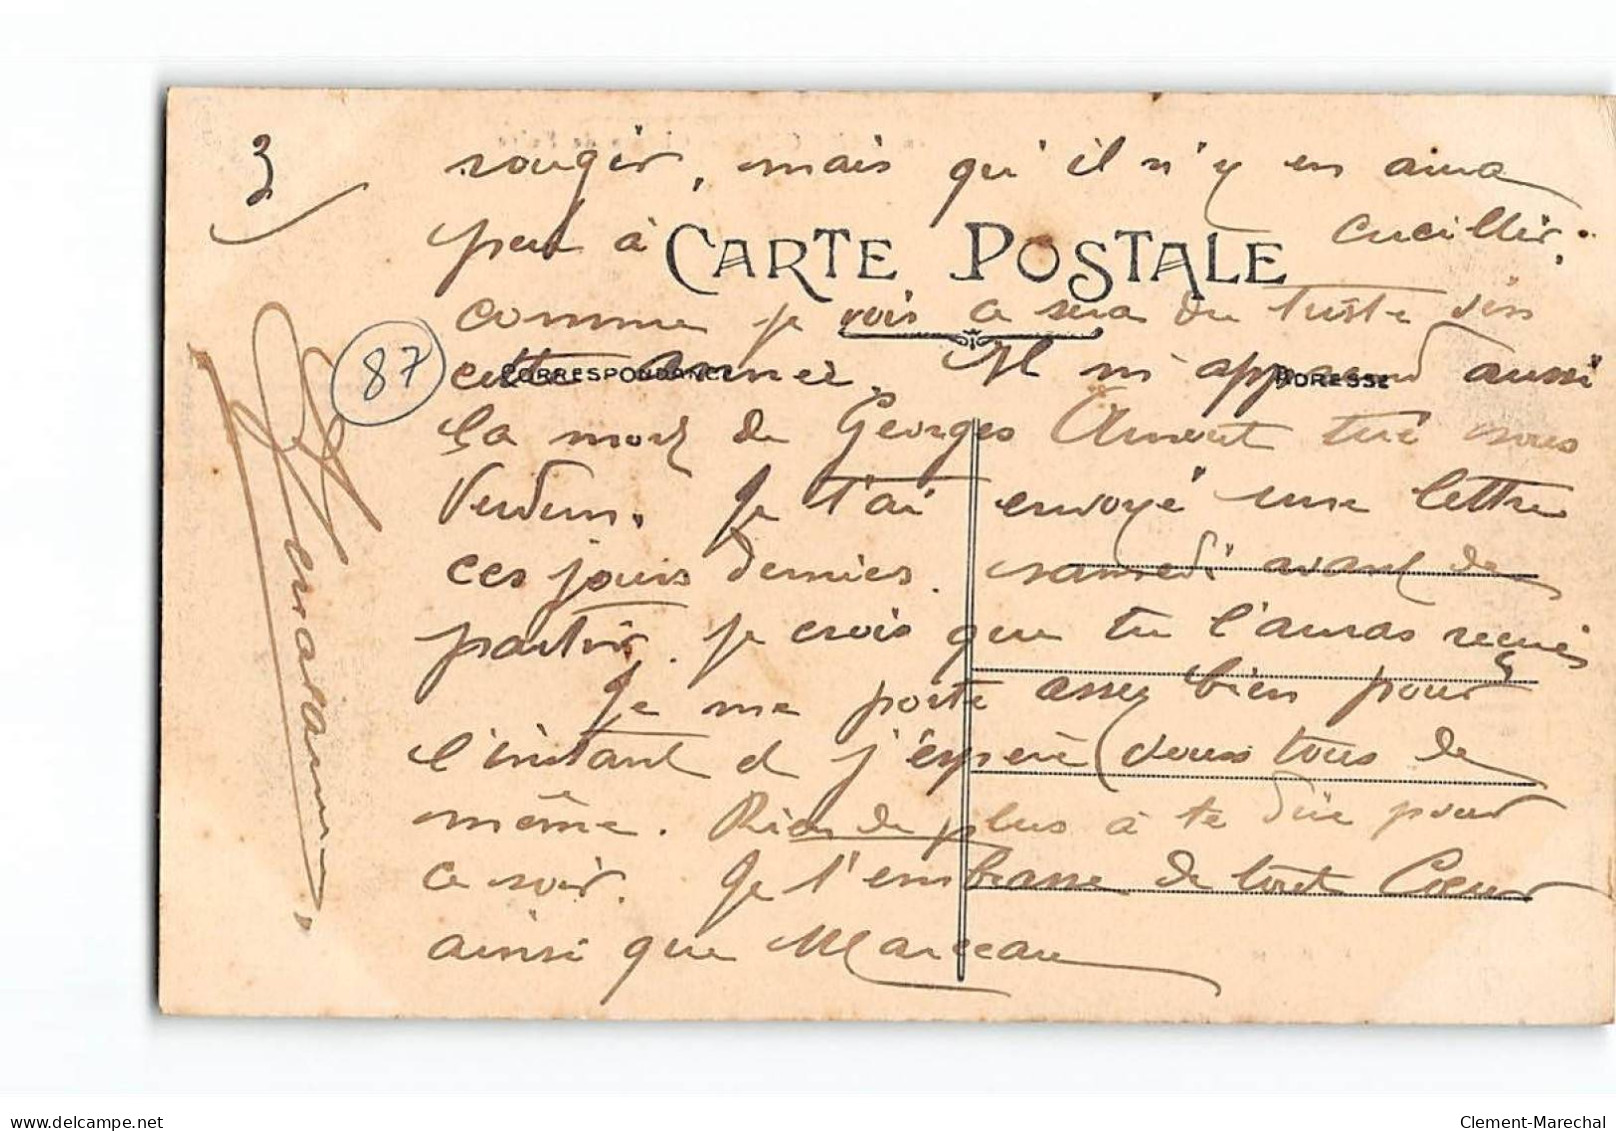 3
rougir, mais qu'il n'y en aura
peu à cueillir.
CARTE POSTALE
comme je vois ce sera du triste vin
CORRESPONDANCE
ADRESSE
cette année. Il m'apprend aussi
87
la mort de Georges tué sous
Verdun. Je t'ai envoyé une lettre
ces jours derniers. samedi avant de
partir. je crois que tu l'auras reçues
Je me porte assez bien pour
l'instant et j'espère vous tous de
même. Rien de plus à te dire pour
ce soir. Je t'embrasse de tout Coeur
ainsi que Marceau
delcampe.net
Clement-Marechal